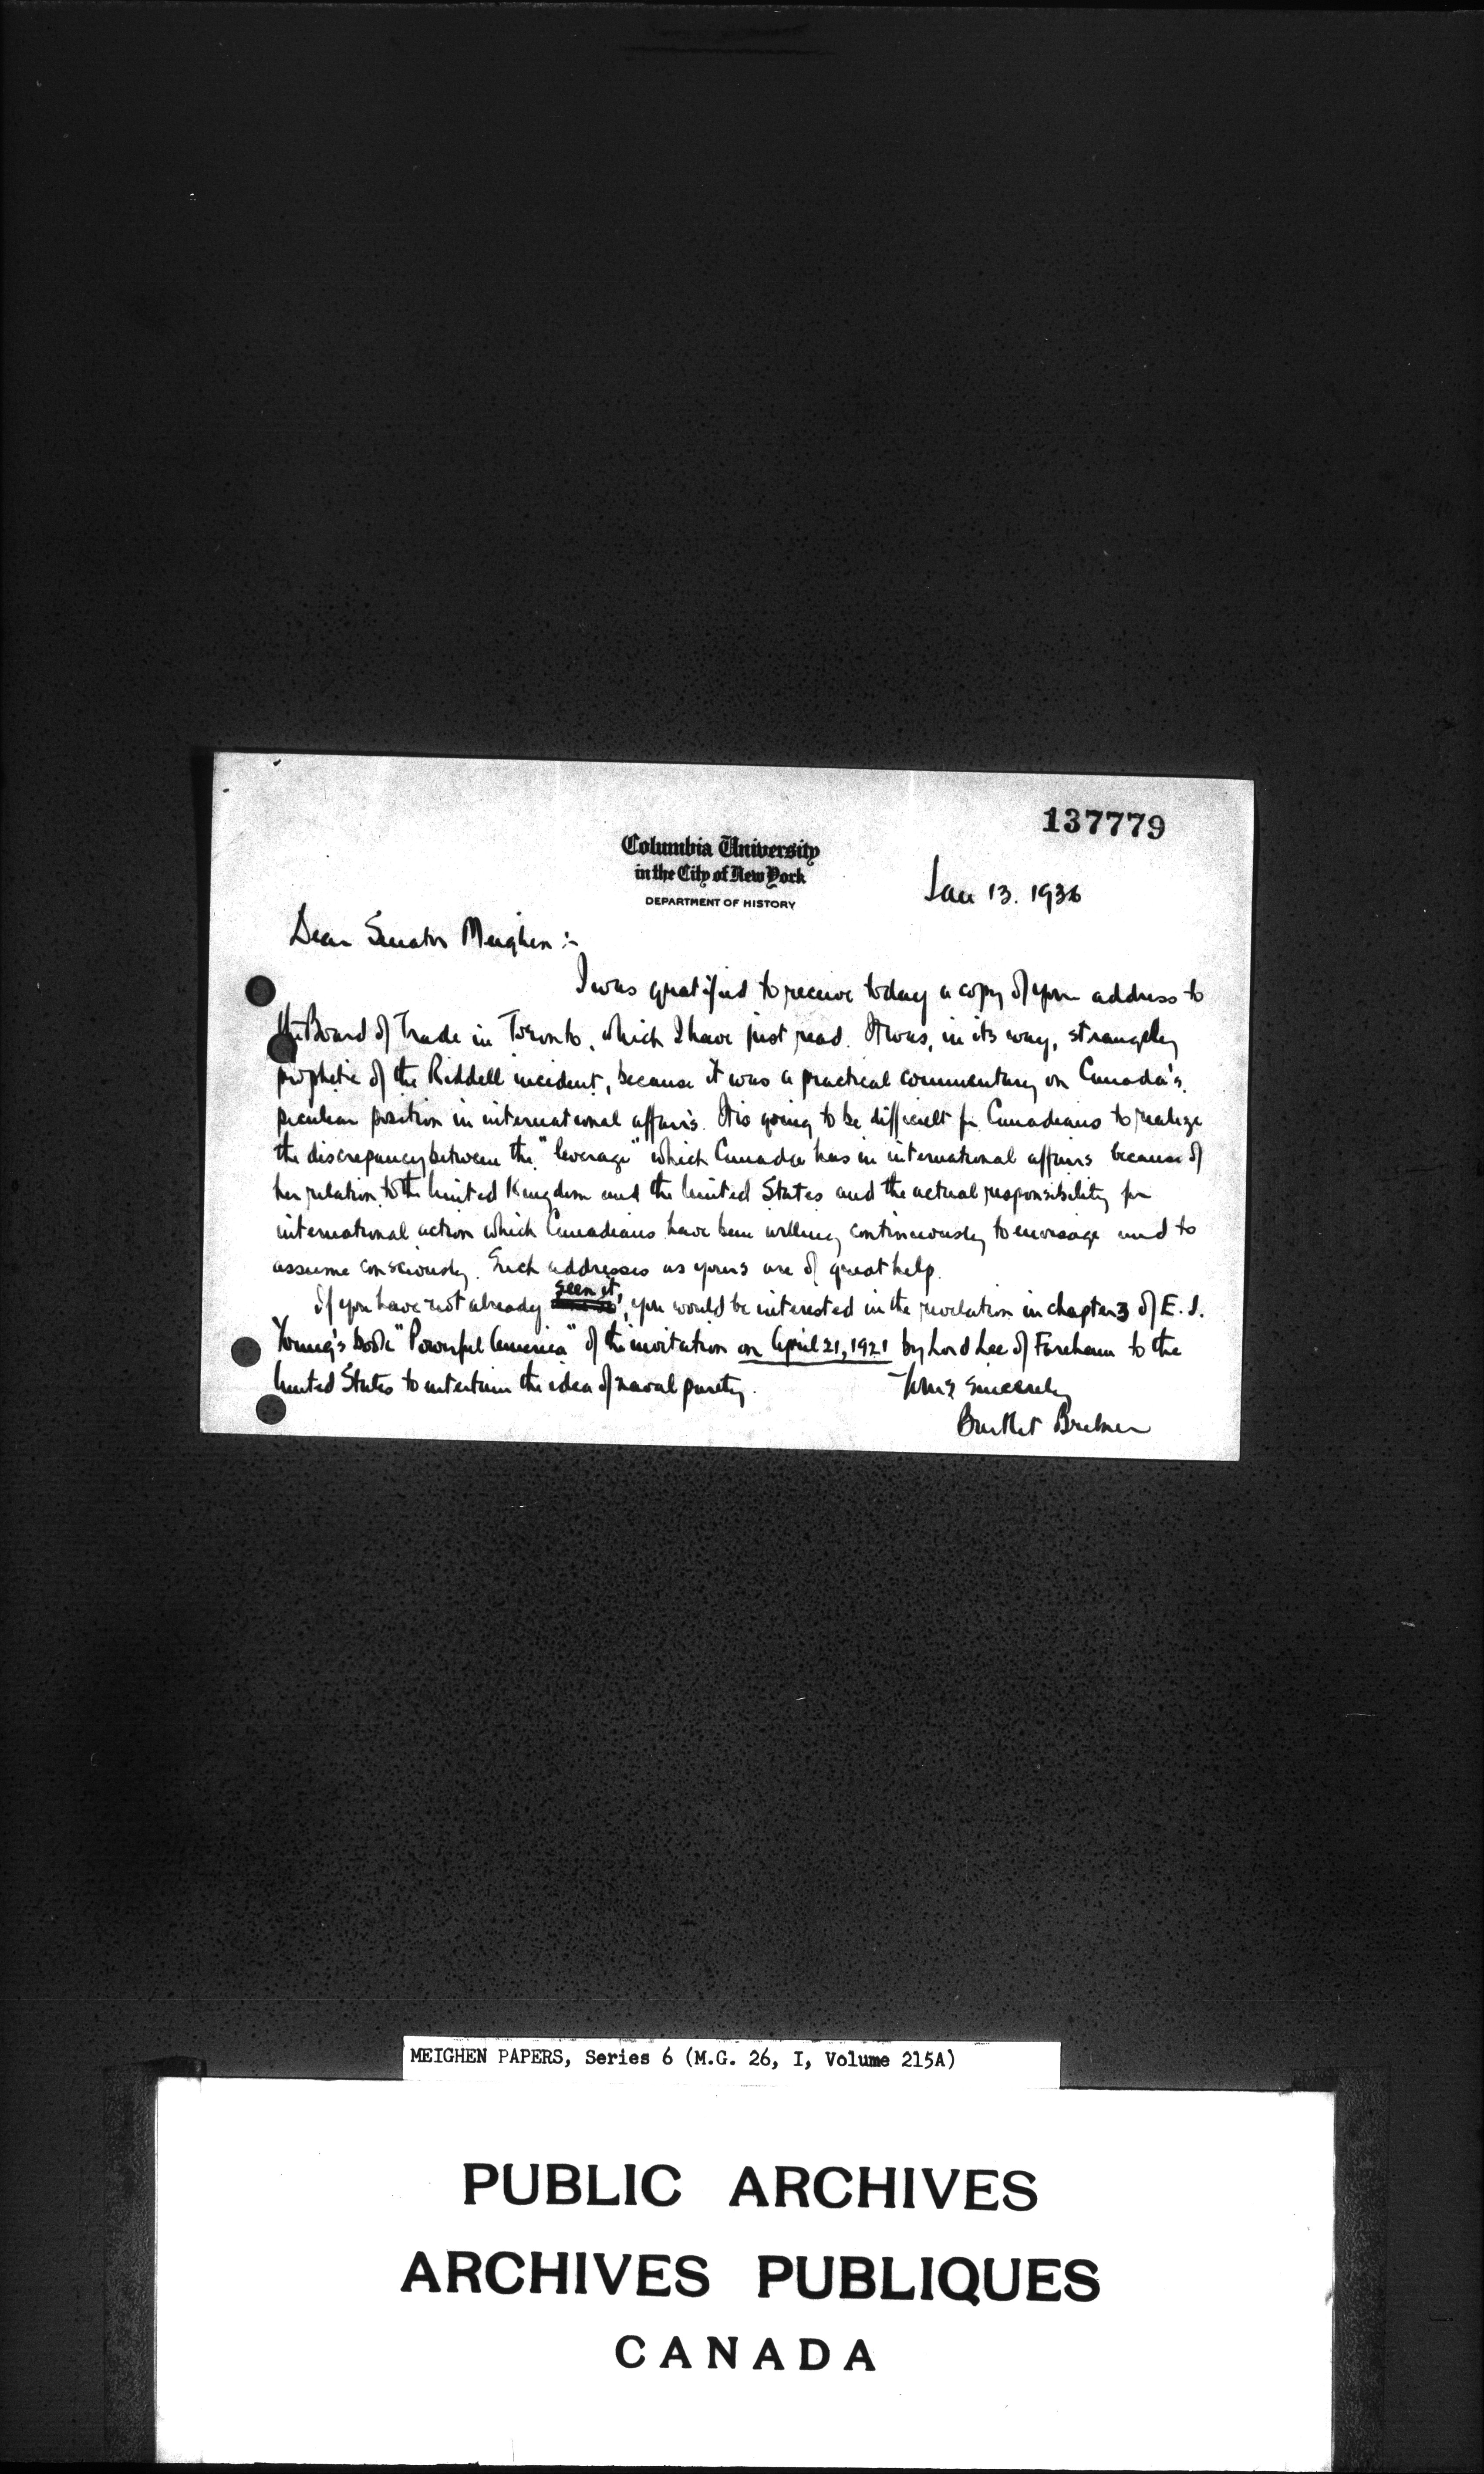 137779
Columbia University
in the City of New York
DEPARTMENT OF HISTORY
Jan 13. 1936
Dear Senator Meighen :-
I was gratified to receive today a copy of your address to
the Board of Trade in Toronto, which I have just read. It was, in its way, strangely
prophetic of the Riddell incident, because it was a practical commentary on Canada's
peculiar position in international affairs. It is going to be difficult for Canadians to realize
the discrepancy between the "leverage" which Canada has in international affairs because of
her relation to the United Kingdom and the United States and the actual responsibility for
international action which Canadians have been willing continuously to envisage and to
assume consciously. Such addresses as yours are of great help.
seen it,
If you have not already , you would be interested in the revelation in chapter 3 of E. J.
Young's book "Powerful America" of the invitation on April 21, 1921 by Lord Lee of Fareham to the
United States to entertain the idea of naval parity.
Yours sincerely
Bartlet Brebner
MEIGHEN PAPERS, Series 6 (M.G. 26, I, Volume 215A)
PUBLIC ARCHIVES
ARCHIVES PUBLIQUES
CANADA